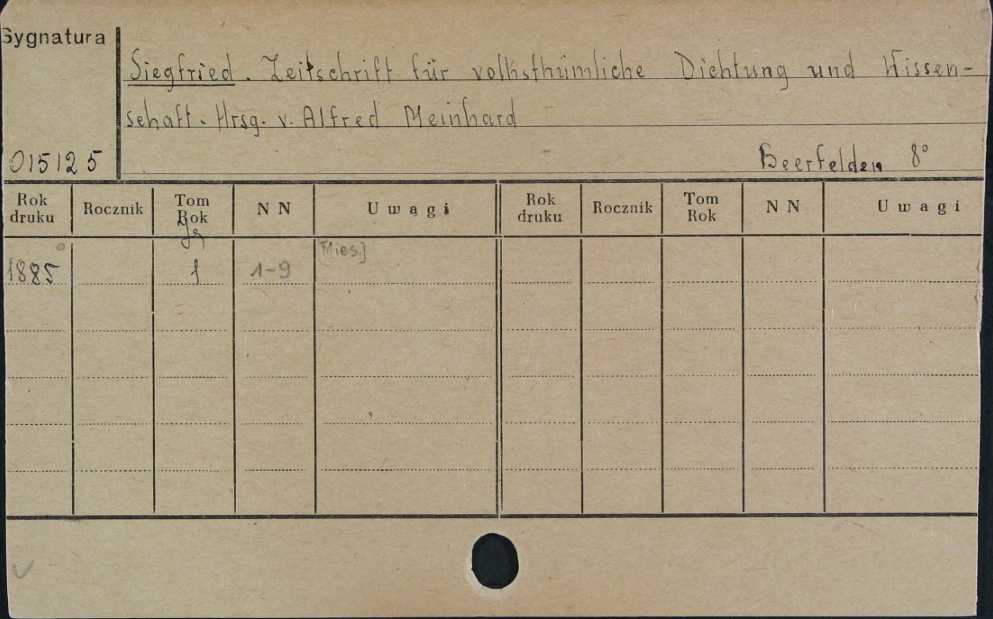 Sygnatura
Siegfried. Zeitschrift für volksthümliche Dichtung und Wissen-
schaft. Hrsg. v. Alfred Meinhard
015125 Beerfelden 8°
Rok druku Rocznik Tom Rok NN Uwagi Rok druku Rocznik Tom Rok NN Uwagi
Jg
[Mies.]
1885 1 1-9